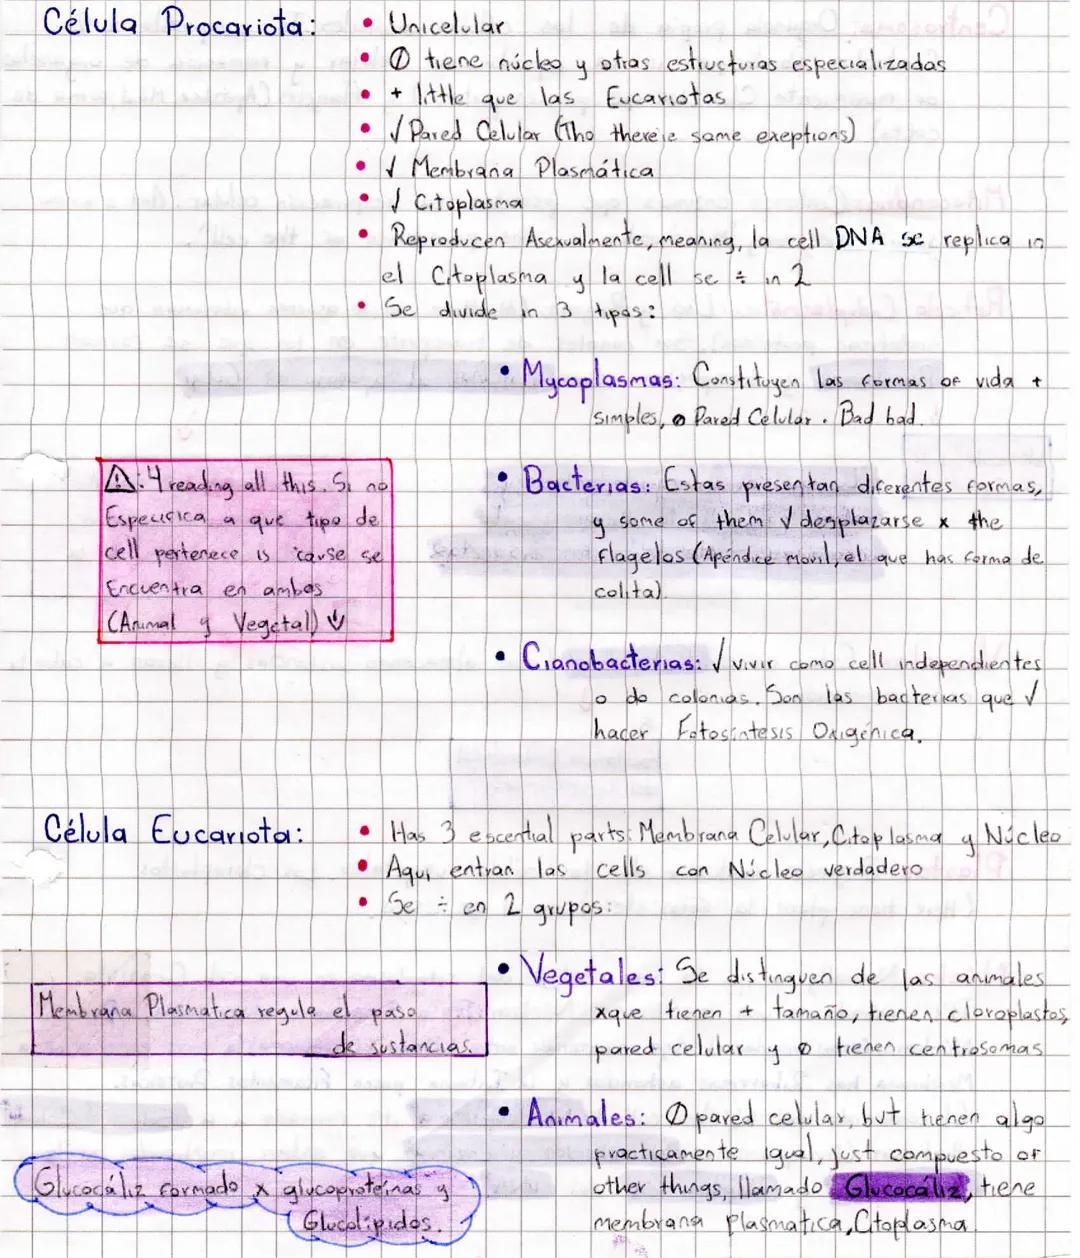 Célula Procariota:
• Unicelular
• Ø tiene núcleo y otras estructuras especializadas
• + little que las Eucariotas
• √ Pared Celular (Tho there're some exeptions)
• √ Membrana Plasmática
• √ Citoplasma
• Reproducen Asexualmente, meaning, la cell DNA se replica in
el Citoplasma y la cell se ÷ in 2
• Se divide in 3 tipos:
• Mycoplasmas: Constituyen las formas of vida +
simples, ø Pared Celular. Bad bad.
⚠: 4 reading all this. Si no
Especifica a que tipo de
cell pertenece is 'cause se
Encuentra en ambos
(Animal y Vegetal) ↓
• Bacterias: Estas presentan diferentes formas,
y some of them √ desplazarse x the
flagelos (Apéndice movil, el que has forma de
colita).
• Cianobacterias: √ vivir como cell independientes
o do colonias. Son las bacterias que √
hacer Fotosíntesis Oxigénica.
Célula Eucariota:
• Has 3 escential parts: Membrana Celular, Citoplasma y Núcleo
• Aqui entran las cells con Núcleo verdadero
• Se ÷ en 2 grupos:
• Vegetales: Se distinguen de las animales
xque tienen + tamaño, tienen cloroplastos,
pared celular y ø tienen centrosomas
Membrana Plasmatica regula el paso
de sustancias.
• Animales: Ø pared celular, but tienen algo
practicamente igual, just compuesto of
other things, llamado Glucocáliz, tiene
membrana plasmatica, Citoplasma.
Glucocáliz formado x glucoproteínas y
Glucolípidos.